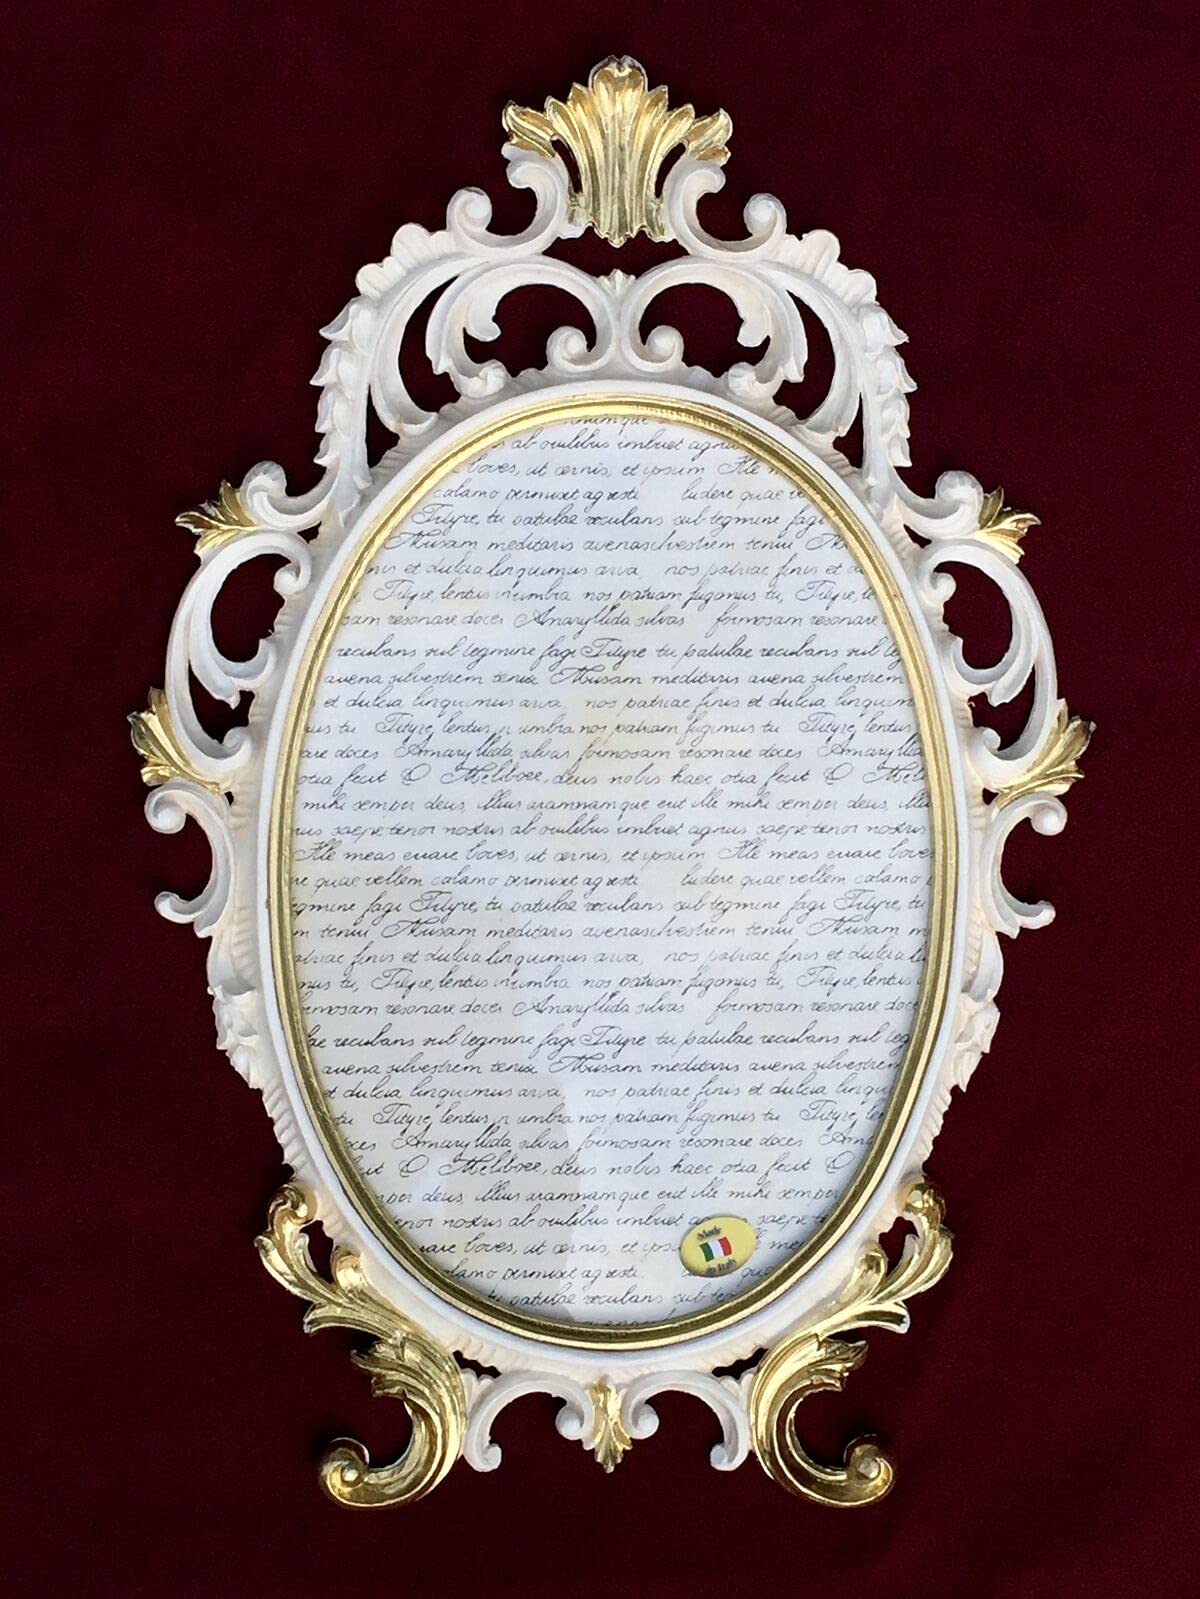 namque
ab ouilibus imbuet agnus
boves, ut cernis, et ipsum Ille m
calamo permiset agresti ludere quae ve
Tityre, tu patulae recubans sub tegmine fagi
Musam meditaris avenasilvestrem tenui Mu
nis et dulcia linquimus arva, nos patriae finis et du
Tityre, lentus in umbra nos patriam fugimus tu, Tityre, le
sam resonare doces Amaryllida silvas formosam resonare
recubans sub tegmine fagi Tityre tu patulae recubans sub teg
avena silvestrem tenui Musam meditaris avena silvestrem
et dulcia linquimus arva, nos patriae finis et dulcia linquim
mus tu Tityre, lentus n umbra nos patriam fugimus tu Tityre, lentus
are doces Amaryllida silvas formosam resonare doces Amaryllida
otia fecit O Meliboee, deus nobis haec otia fecit O Meli
mihi semper deus, illius aramnamque erit ille mihi semper deus, illiu
nus saepe tenor nostris ab ouilibus imbuet agnus saepe tenor nostris
Ille meas errare boves, ut cernis, et ipsum Ille meas errare boves
re quae vellem calamo permiset agresti ludere quae vellem calamo
egmine fagi Tityre, tu patulae recubans sub tegmine fagi Tityre, tu
m tenui Musam meditaris avenasilvestrem tenui Musam m
atriae finis et dulcia linquimus arva, nos patriae finis et dulcia li
mus tu, Tityre, lentus in umbra nos patriam fugimus tu, Tityre, lentus
rmosam resonare doces Amaryllida silvas formosam resonare doce
lae recubans sub tegmine fagi Tityre tu patulae recubans sub teg
avena silvestrem tenui Musam meditaris avena silvestrem
et dulcia linquimus arva, nos patriae finis et dulcia linqui
tu Tityre, lentus n umbra nos patriam fugimus tu Tityre, len
oces Amaryllida silvas formosam resonare doces Ama
cit O Meliboee, deus nobis haec otia fecit O
mper deus, illius aramnamque erit ille mihi semper
tenor nostris ab ouilibus imbuet ag saepe te
rrare boves, ut cernis, et ipsu me
alamo permiset agresti quae
tu patulae recubans sub te
Made
in Italy